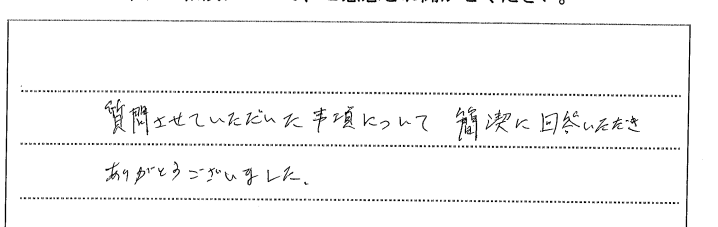 質問させていただいた事項について 簡潔に回答いただき
ありがとうございました。